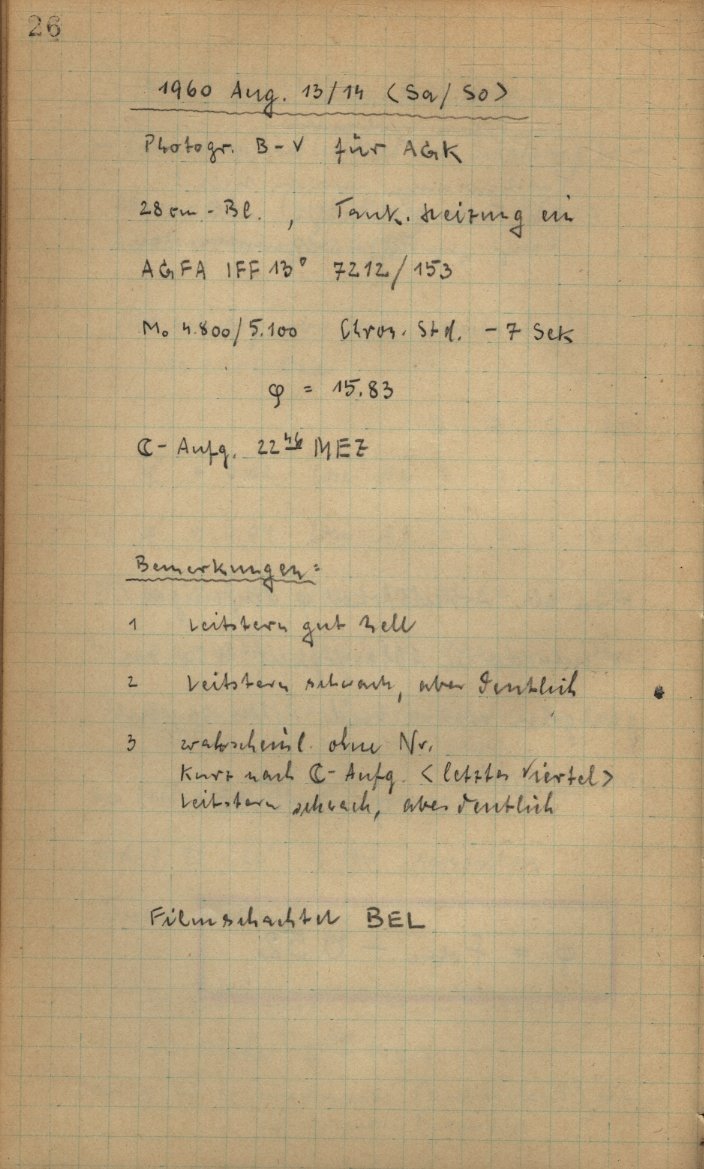 26
1960 Aug. 13/14 <Sa/So>
Photogr. B-V für AGK
28 cm-Bl., Tauk. Heizung ein
AGFA IFF 13° 7212/153
Mo 4.800/5.100 Chron. Std. - 7 Sek
φ = 15.83
☾-Aufg. 22 46 MEZ
Bemerkungen:
1 Leitstern gut hell
2 Leitstern schwach, aber deutlich
3 wahrscheinl. ohne Nr.
kurz nach ☾-Aufg. <letztes Viertel>
Leitstern schwach, aber deutlich
Filmschachtel BEL